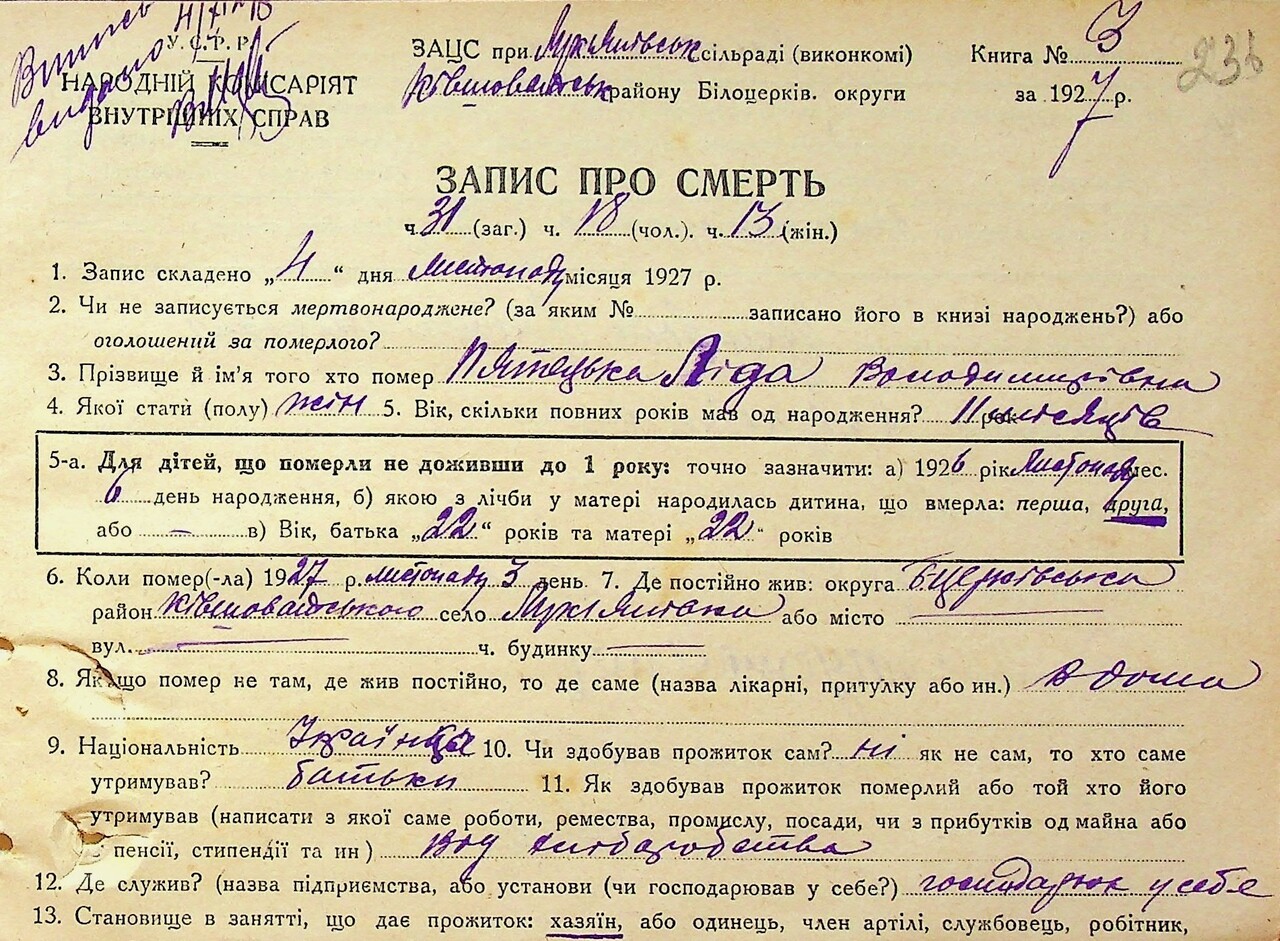 Випись 4/XI
видано
У. С. Р. Р.
НАРОДНІЙ КОМІСАРІЯТ
ВНУТРІШНІХ СПРАВ
ЗАЦС при Лук'янівськ сільраді (виконкомі)
Ківшоватськ району Білоцерків. округи
Книга № 3
за 1927 р.
236
ЗАПИС ПРО СМЕРТЬ
ч. 31 (заг.) ч. 18 (чол.). ч. 13 (жін.)
1. Запис складено „ 4 “ дня Листопаду місяця 1927 р.
2. Чи не записується мертвонароджене? (за яким № записано його в книзі народжень?) або
оголошений за померлого?
3. Прізвище й ім'я того хто помер Пятецька Ліда Володимирівна
4. Якої статі (полу) жін 5. Вік, скільки повних років мав од народження? 11 місяців рок
5-а. Для дітей, що померли не доживши до 1 року: точно зазначити: а) 1926 рік Листопаду мес.
6 день народження, б) якою з лічби у матері народилась дитина, що вмерла: перша, друга,
або — в) Вік, батька „22“ років та матері „22“ років
6. Коли помер(-ла) 1927 р. листопаду 3 день 7. Де постійно жив: округа БЦерківська
район Ківшоватського село Лук'янівка або місто —
вул. — ч. будинку —
8. Якщо помер не там, де жив постійно, то де саме (назва лікарні, притулку або ин.) В дома
9. Національність Українка 10. Чи здобував прожиток сам? ні як не сам, то хто саме
утримував? батьки 11. Як здобував прожиток померлий або той хто його
утримував (написати з якої саме роботи, ремества, промислу, посади, чи з прибутків од майна або
пенсії, стипендії та ин) від хліборобства
12. Де служив? (назва підприємства, або установи (чи господарював у себе?) господарюк у себе
13. Становище в занятті, що дає прожиток: хазяїн, або одинець, член артілі, службовець, робітник,